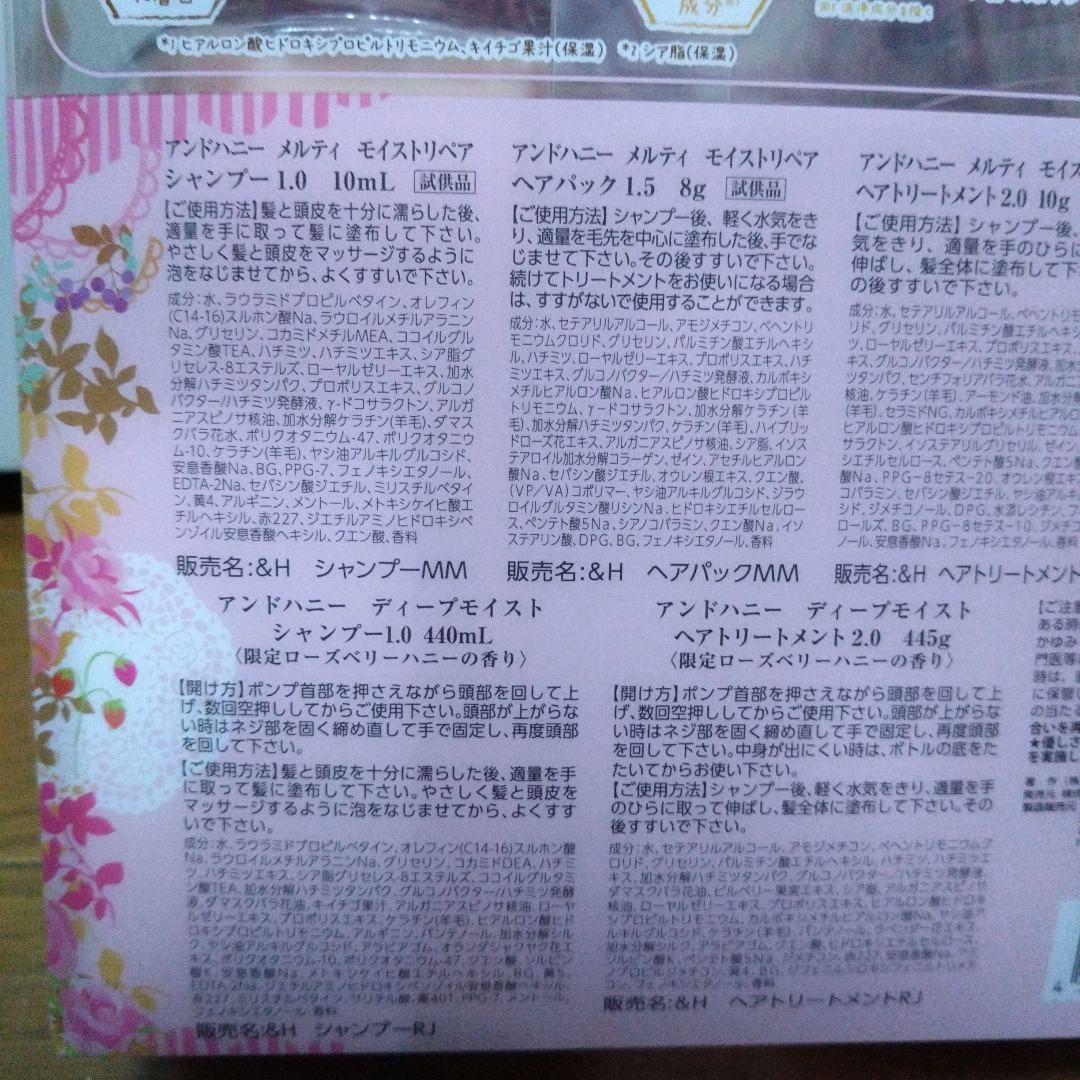 成分
※1 洗浄成分を除く
*1ヒアルロン酸ヒドロキシプロピルトリモニウム、キイチゴ果汁(保湿)
*2シア脂(保湿)
アンドハニー メルティ モイストリペア
シャンプー1.0 10mL 試供品
【ご使用方法】髪と頭皮を十分に濡らした後、
適量を手に取って髪に塗布して下さい。
やさしく髪と頭皮をマッサージするように
泡をなじませてから、よくすすいで下さい。
成分:水、ラウラミドプロピルベタイン、オレフィン
(C14-16)スルホン酸Na、ラウロイルメチルアラニン
Na、グリセリン、コカミドメチルMEA、ココイルグル
タミン酸TEA、ハチミツ、ハチミツエキス、シア脂グ
リセレス-8エステルズ、ローヤルゼリーエキス、加水
分解ハチミツタンパク、プロポリスエキス、グルコノ
バクター/ハチミツ発酵液、γ-ドコサラクトン、アルガ
ニアスピノサ核油、加水分解ケラチン(羊毛)、ダマス
クバラ花水、ポリクオタニウム-47、ポリクオタニウ
ム-10、ケラチン(羊毛)、ヤシ油アルキルグルコシド、
安息香酸Na、BG、PPG-7、フェノキシエタノール、
EDTA-2Na、セバシン酸ジエチル、ミリスチルベタイ
ン、黄4、アルギニン、メントール、メトキシケイヒ酸エ
チルヘキシル、赤227、ジエチルアミノヒドロキシベ
ンゾイル安息香酸ヘキシル、クエン酸、香料
販売名:&H シャンプーMM
アンドハニー メルティ モイストリペア
ヘアパック1.5 8g 試供品
【ご使用方法】シャンプー後、軽く水気をき
り、適量を毛先を中心に塗布した後、手でな
じませて下さい。その後すすいで下さい。
続けてトリートメントをお使いになる場合
は、すすがないで使用することができます。
成分:水、セテアリルアルコール、アモジメチコン、ベヘントリ
モニウムクロリド、グリセリン、パルミチン酸エチルヘキシ
ル、ハチミツ、ローヤルゼリーエキス、プロポリスエキス、ハチ
ミツエキス、グルコノバクター/ハチミツ発酵液、カルボキシ
メチルヒアルロン酸Na、ヒアルロン酸ヒドロキシプロピルト
リモニウム、γ-ドコサラクトン、加水分解ケラチン(羊
毛)、加水分解ハチミツタンパク、ケラチン(羊毛)、ハイブリッ
ドローズ花エキス、アルガニアスピノサ核油、シア脂、イソス
テアロイル加水分解コラーゲン、ゼイン、アセチルヒアルロン
酸Na、セバシン酸ジエチル、オウレン根エキス、クエン酸、
(VP/VA)コポリマー、ヤシ油アルキルグルコシド、ジラウ
ロイルグルタミン酸リシンNa、ヒドロキシエチルセルロー
ス、ペンテト酸5Na、シアノコバラミン、クエン酸Na、イソ
ステアリン酸、DPG、BG、フェノキシエタノール、香料
販売名:&H ヘアパックMM
アンドハニー メルティ モイス
ヘアトリートメント2.0 10g
【ご使用方法】シャンプー後、
気をきり、適量を手のひらに
伸ばし、髪全体に塗布して下
の後すすいで下さい。
成分:水、セテアリルアルコール、ベヘントリモ
リド、グリセリン、パルミチン酸エチルヘキシ
ツ、ローヤルゼリーエキス、プロポリスエキス、
キス、グルコノバクター/ハチミツ発酵液、加水
ツタンパク、センチフォリアバラ花水、アルガニ
ケラチン(羊毛)、アーモンド油、加水
(羊毛)、セラミドNG、カルボキシメチルヒアルロ
ヒアルロン酸ヒドロキシプロピルトリモニウム、
サラクトン、イソステアリルグリセリル、ゼイン、
シエチルセルロース、ペンテト酸5Na、クエン酸
Na、PPG-8セテス-20、オウレン根エキス
コバラミン、セバシン酸ジエチル、ヤシ油アルキ
シド、ジメチコノール、DPG、水添レシチン、フ
ロールズ、BG、PPG-8セテス-10、ジメチコ
ノール、安息香酸Na、フェノキシエタノール、香料
販売名:&H ヘアトリートメント
アンドハニー ディープモイスト
シャンプー1.0 440mL
〈限定ローズベリーハニーの香り〉
【開け方】ポンプ首部を押さえながら頭部を回して上
げ、数回空押ししてからご使用下さい。頭部が上がらな
い時はネジ部を固く締め直して手で固定し、再度頭部
を回して下さい。
【ご使用方法】髪と頭皮を十分に濡らした後、適量を手
に取って髪に塗布して下さい。やさしく髪と頭皮を
マッサージするように泡をなじませてから、よくすす
いで下さい。
成分:水、ラウラミドプロピルベタイン、オレフィン(C14-16)スルホン酸
Na、ラウロイルメチルアラニンNa、グリセリン、コカミドDEA、ハチミ
ツ、ハチミツエキス、シア脂グリセレス-8エステルズ、ココイルグルタミ
ン酸TEA、加水分解ハチミツタンパク、グルコノバクター/ハチミツ発酵
液、ダマスクバラ花油、キイチゴ果汁、アルガニアスピノサ核油、ローヤ
ルゼリーエキス、プロポリスエキス、ケラチン(羊毛)、ヒアルロン酸ヒド
ロキシプロピルトリモニウム、アルギニン、パンテノール、加水分解シル
ク、ヤシ油アルキルグルコシド、アラビアゴム、オランダシャクヤク花エ
キス、ポリクオタニウム-10、ポリクオタニウム-47、クエン酸、ソルビン
酸K、安息香酸Na、メトキシケイヒ酸エチルヘキシル、BG、黄5、
EDTA-2Na、ジエチルアミノヒドロキシベンゾイル安息香酸ヘキシル、
赤227、ミリスチルベタイン、サリチル酸、紫401、PPG-7、メントール、
フェノキシエタノール、香料
販売名:&H シャンプーRJ
アンドハニー ディープモイスト
ヘアトリートメント2.0 445g
〈限定ローズベリーハニーの香り〉
【開け方】ポンプ首部を押さえながら頭部を回して上
げ、数回空押ししてからご使用下さい。頭部が上がらな
い時はネジ部を固く締め直して手で固定し、再度頭部
を回して下さい。中身が出にくい時は、ボトルの底をた
たいてからお使い下さい。
【ご使用方法】シャンプー後、軽く水気をきり、適量を手
のひらに取って伸ばし、髪全体に塗布して下さい。その
後すすいで下さい。
成分:水、セテアリルアルコール、アモジメチコン、ベヘントリモニウムク
ロリド、グリセリン、パルミチン酸エチルヘキシル、ハチミツ、ハチミツエ
キス、加水分解ハチミツタンパク、グルコノバクター/ハチミツ発酵液、
ダマスクバラ花油、ビルベリー果実エキス、シア脂、アルガニアスピノサ
核油、ローヤルゼリーエキス、プロポリスエキス、ヒアルロン酸ヒドロキ
シプロピルトリモニウム、カルボキシメチルヒアルロン酸Na、ヤシ油ア
ルキルグルコシド、ケラチン(羊毛)、パンテノール、ラベンダー花エキス、
加水分解シルク、アラビアゴム、クエン酸、ヒドロキシエチルセルロース、
ソルビン酸K、ペンテト酸5Na、ジメチコン、赤227、安息香酸Na、アミ
ノプロピルジメチコン、黄4、BG、ジフェニルシロキシフェニルトリメチ
コン、イソプロパノール、フェノキシエタノール、香料
販売名:&H ヘアトリートメントRJ
【ご注意
ある時
かゆみ
門医等
時は、
に保管
の当た
合いを再
★優しさ
を実施し
発売元 株式
製造販売元
4